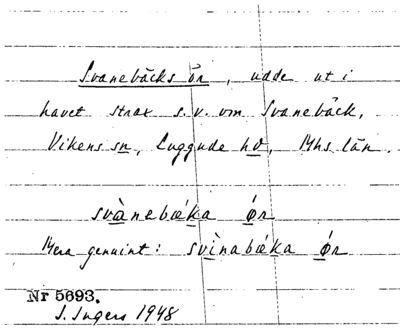 Svanebäcks ör, udde ut i
havet strax s.v. om Svanebäck,
Vikens sn, Luggude hd, Mhs län.
svànebǽka ǿr
Mera genuint: svìnabǽka ǿr
Nr 5693.
I. Ingers 1948